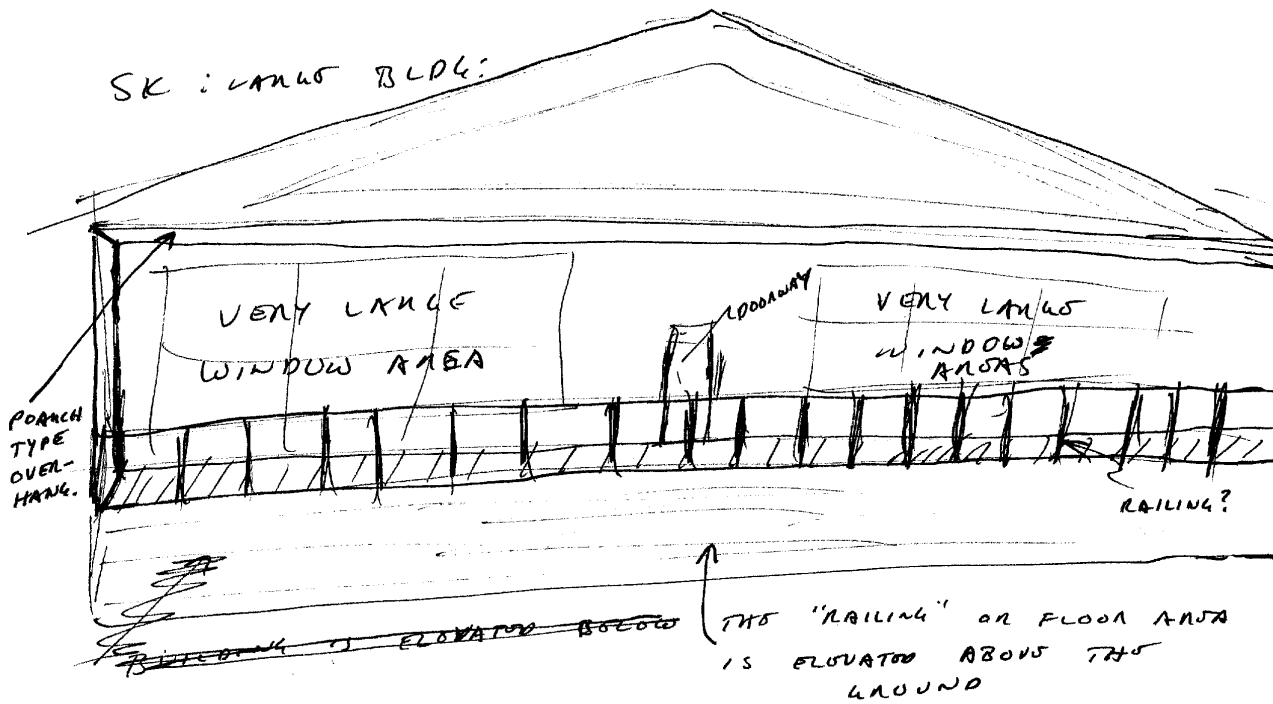 SK : LARGE BLDG:
VERY LARGE
WINDOW AREA
DOORWAY
VERY LARGE
WINDOW
AREAS
PORCH
TYPE
OVER-
HANG.
RAILING?
BUILDING IS ELEVATED BELOW
THE "RAILING" OR FLOOR AREA
IS ELEVATED ABOVE THE
GROUND